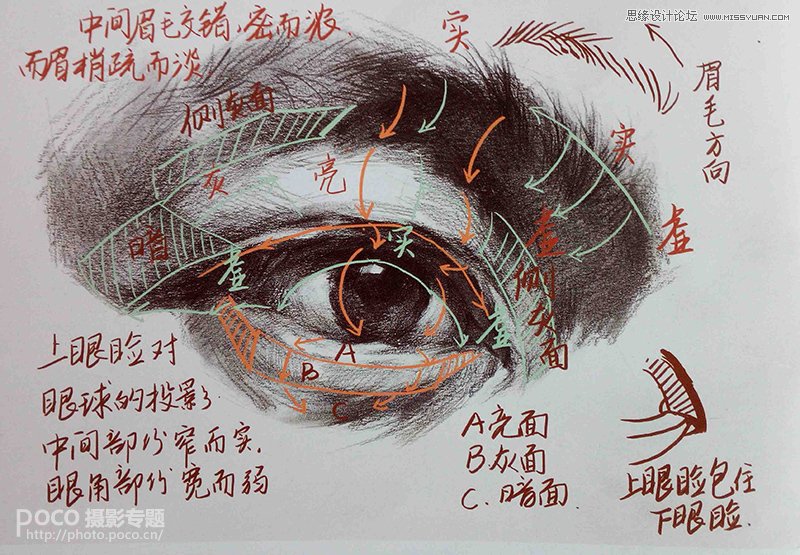 思缘设计论坛 WWW.MISSYUAN.COM
中间眉毛交错,密而浓.
而眉梢疏而淡
实
眉毛方向
侧灰面
灰
亮
实
虚
虚
暗
虚
实
侧灰面
虚
A
B
C
上眼睑对
眼球的投影
中间部份窄而实.
眼角部份宽而弱
A亮面
B灰面
C.暗面.
上眼睑包住
下眼睑.
poco 摄影专题
http://photo.poco.cn/